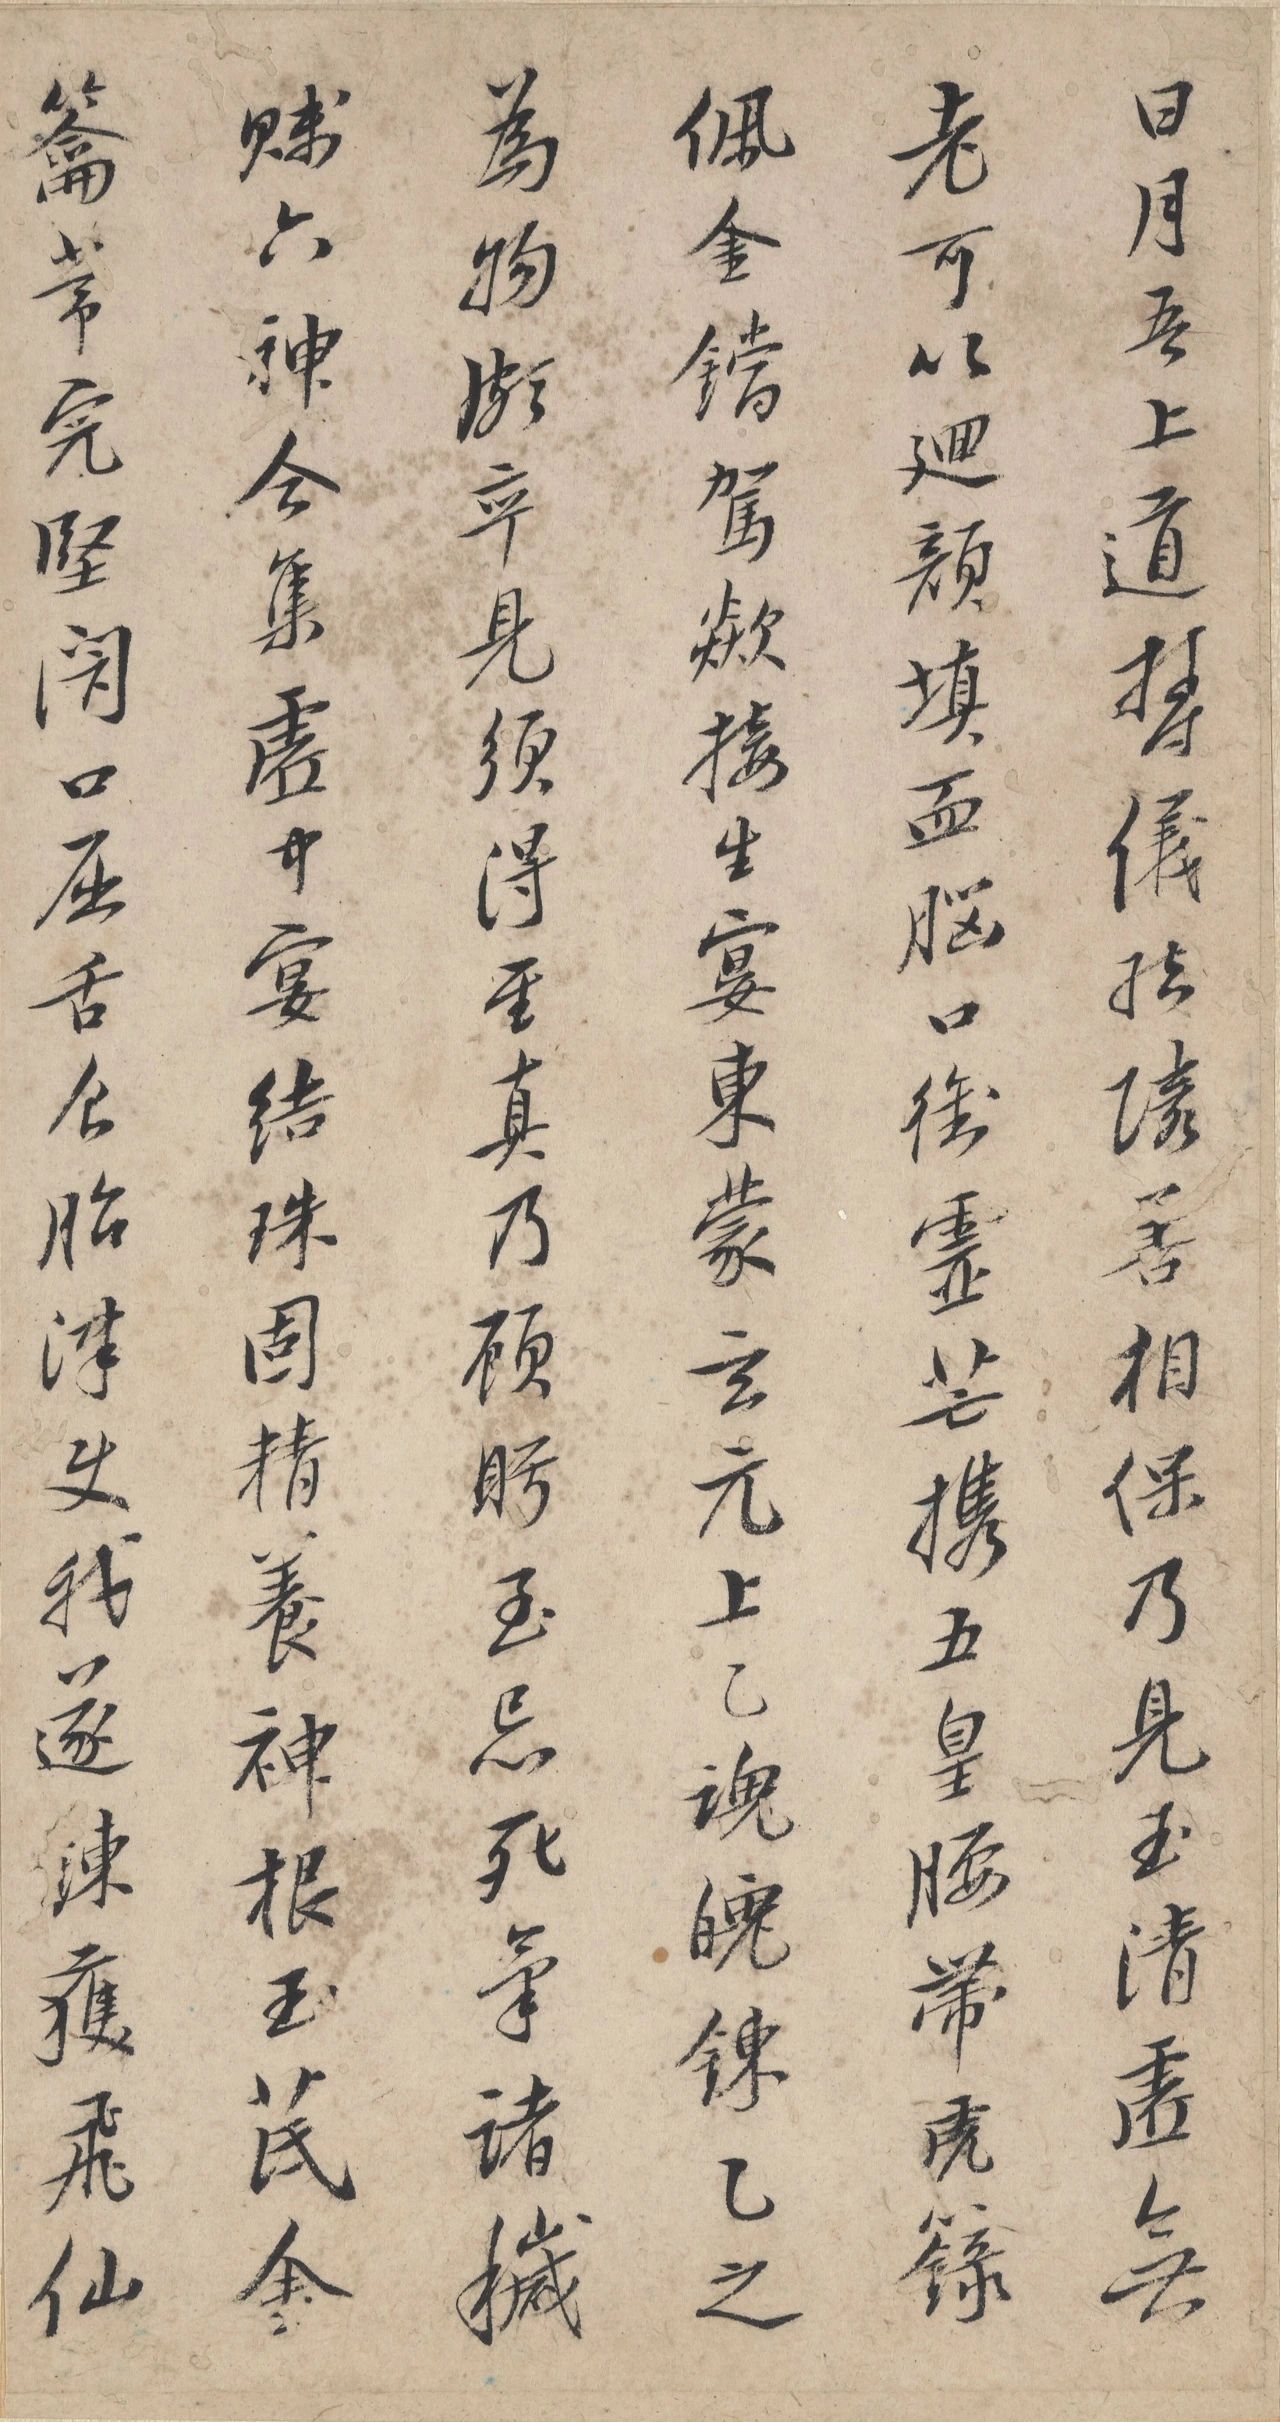 日月吾上道扶儀持陰善相保乃見玉清虛無
老可以迴顏填血腦口銜靈芒攜五皇腰帶虎籙
佩金鐺駕欻接生宴東蒙玄元上乙魂魄鍊乙之
為物頗卒見須得至真乃顧眄至忌死氣諸穢
賤六神合集虛中宴結珠固精養神根玉茋金
籥常完堅閉口屈舌食胎津使我遂鍊獲飛仙